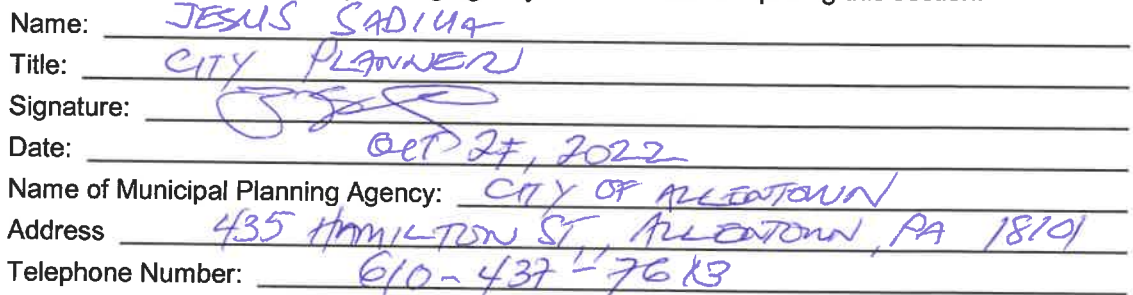 Name: JESUS SADIUA
Title: CITY PLANNER
Signature:
Date: Oct 27, 2022
Name of Municipal Planning Agency: CITY OF ALLENTOWN
Address 435 HAMILTON ST., ALLENTOWN, PA 18101
Telephone Number: 610-437-7613